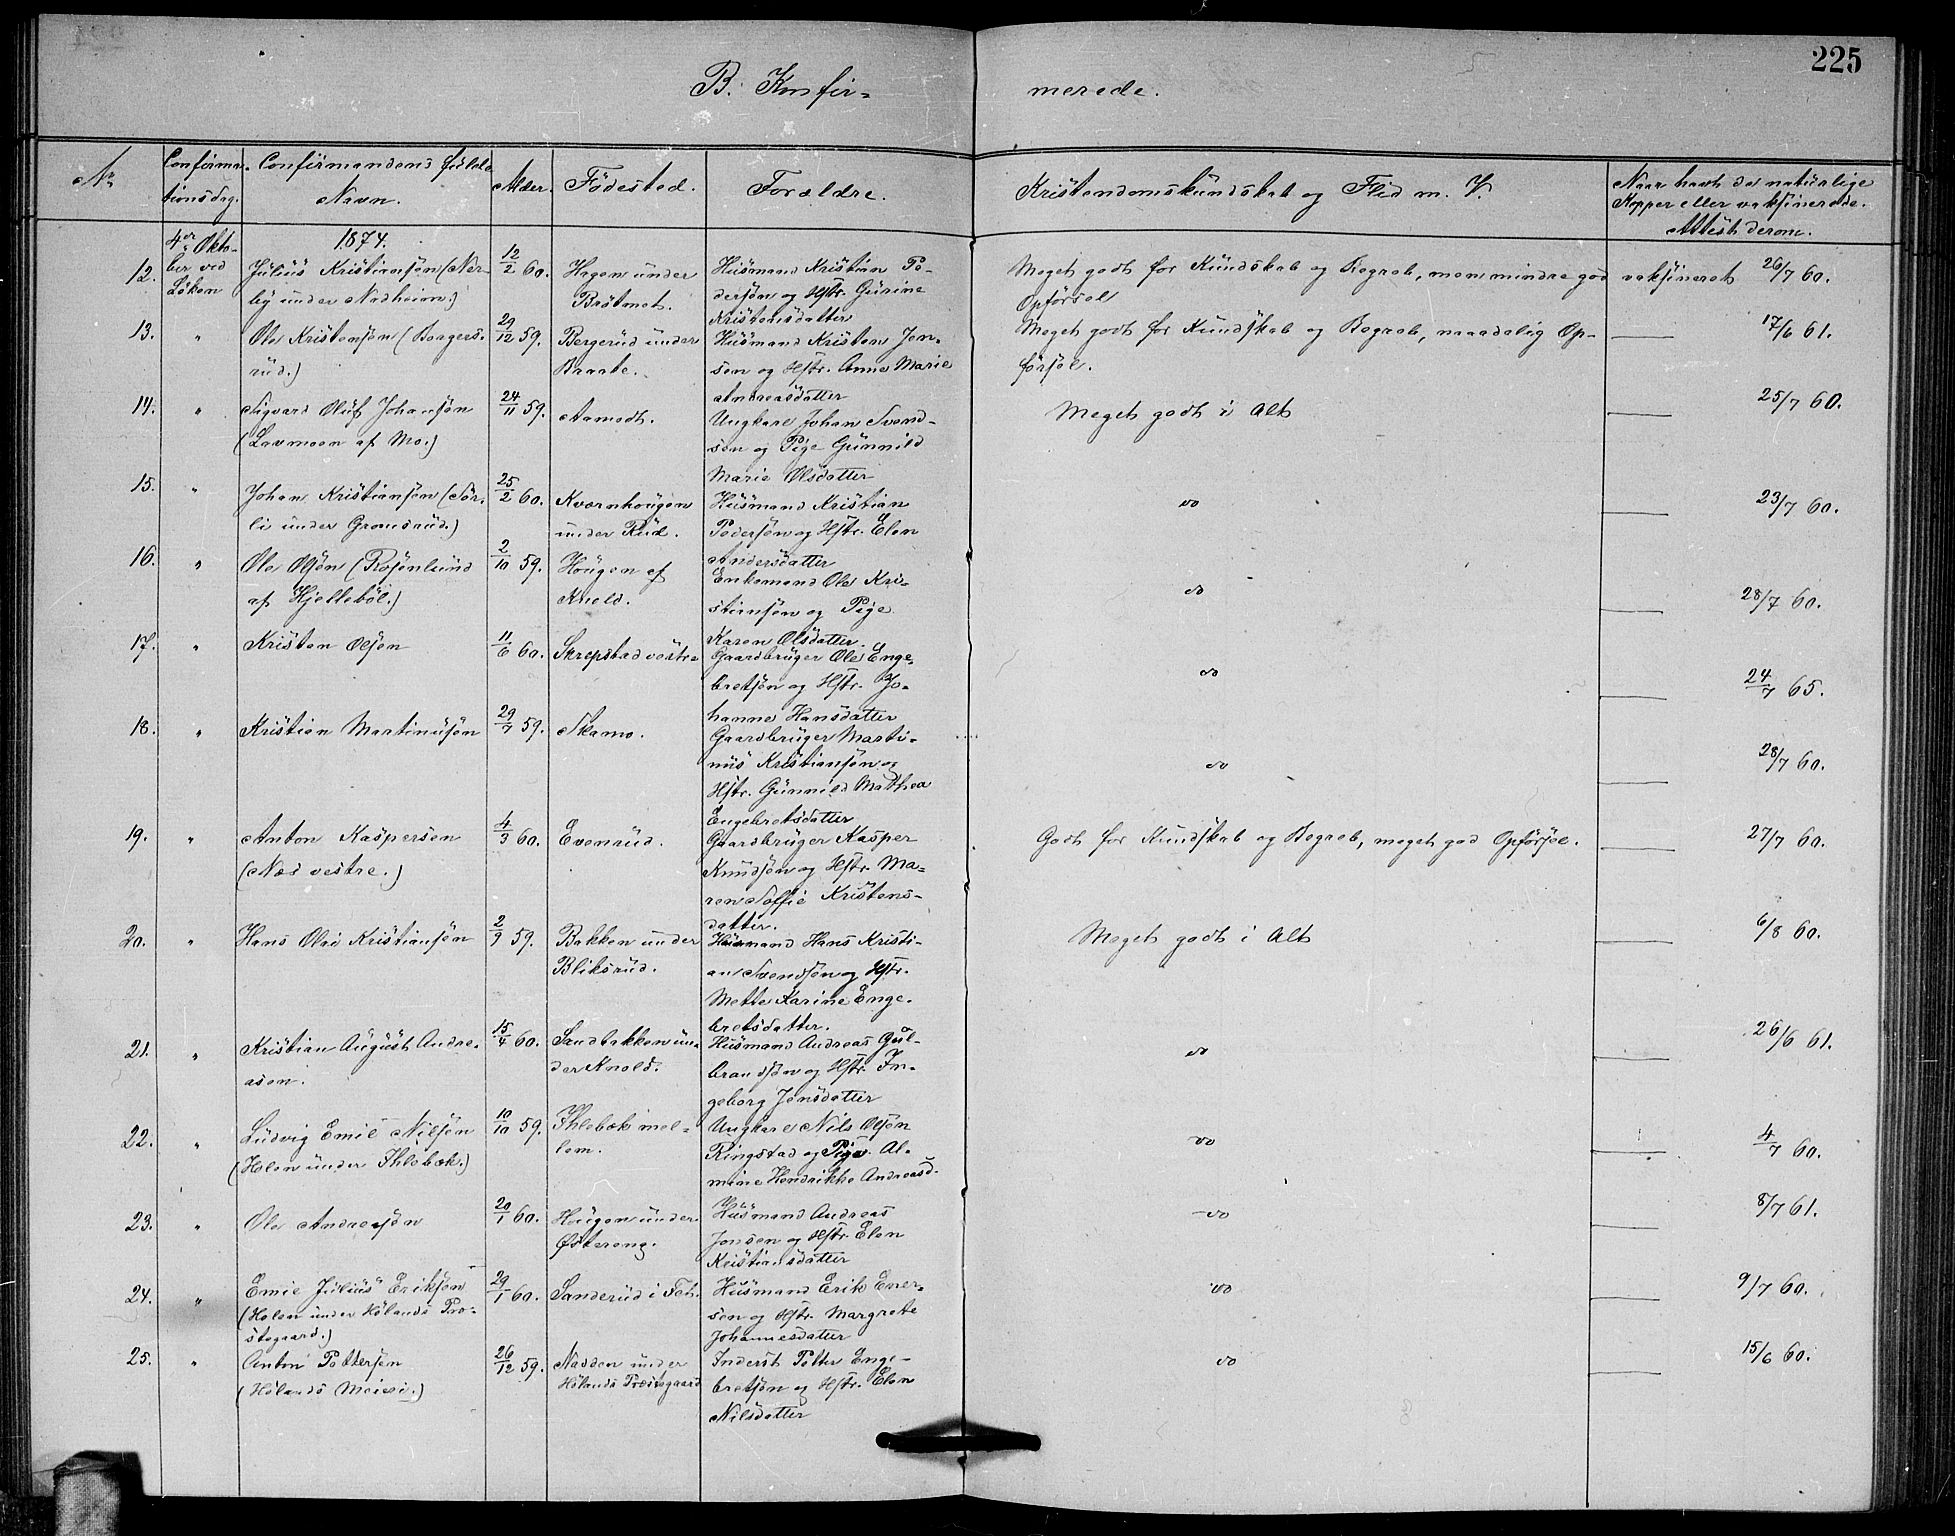 225
B. Konfir-
merede.
No
Confirma-
tionsdag.
Confirmandens fulde
Navn.
Alder.
Födested.
Forældre.
Kristendomskundskab og Flid m. V.
Naar havt de naturlige
Kopper eller vaksinerede.
Attest derom.
1874.
12.
4er Okto-
ber ved
Löken
Julius Kristiansøn (Ner-
by under Nadheim.)
12/2 60.
Hagen under
Bråtmet.
Husmand Kristian Pe-
dersøn og Hstr. Gurine
Kristensdatter
Meget godt for Kundskab og Begreb, men mindre god
Opførsel
vaksineret 26/7 60.
13.
"
Ole Kristensøn (Borgers-
rud.)
29/12 59.
Bergerud under
Braate.
Husmand Kristen Jen-
sen og Hstr. Anne Marie
Andreasdatter
Meget godt for Kundskab og Begreb, maadelig Op-
førsel.
— 17/6 61.
14.
"
Sigvard Oluf Johansøn
(Lavmoen af Mo.)
24/11 59.
Aamodt.
Ungkarl Johan Svend-
sen og Pige Gunnild
Marie Olsdatter
Meget godt i Alt
— 25/7 60.
15.
"
Johan Kristiansøn (Sør-
li under Gromsrud.)
25/2 60.
Kværnhougen
under Rud.
Husmand Kristian
Pedersøn og Hstr. Elen
Andersdatter
do
— 23/7 60.
16.
"
Ole Olsøn (Rosenlund
af Hjellebøl.)
2/10 59.
Hougen af
Knold.
Enkemand Ole Kri-
stiansøn og Pige
Karen Olsdatter.
do
— 28/7 60.
17.
"
Kristen Olsøn
11/6 60.
Skrepstad vestre
Gaardbruger Ole Enge-
bretsøn og Hstr. Jo-
hanne Hansdatter
do
— 24/7 65.
18.
"
Kristian Martinusøn
29/7 59.
Skamo.
Gaardbruger Marti-
nus Kristiansøn og
Hstr. Gunnild Mathea
Engebretsdatter
do
— 28/7 60.
19.
"
Anton Kaspersen
(Næs vestre.)
4/3 60.
Evenrud.
Gaardbruger Kasper
Knudsøn og Hstr. Ma-
ren Soffie Kristens-
datter.
Godt for Kundskab og Begreb, meget god Opførsel.
— 27/7 60.
20.
"
Hans Olai Kristiansøn
2/9 59.
Bakken under
Bliksrud.
Husmand Hans Kristi-
an Svendsøn og Hstr.
Mette Karine Enge-
bretsdatter.
Meget godt i Alt
— 6/8 60.
21.
"
Kristian August Andre-
asen.
15/4 60.
Sandbakken un-
der Knold.
Husmand Andreas Gul-
brandsøn og Hstr. In-
geborg Jensdatter
do
— 26/6 61.
22.
"
Ludvig Emil Nilsøn
(Holen under Ihlebæk.)
10/10 59.
Ihlebæk mel-
lem.
Ungkarl Nils Olsøn
Ringstad og Pige Al-
mine Hendrikke Andreasd.
do
— 4/7 60.
23.
"
Ole Andreasøn
20/1 60.
Hougen under
Østereng.
Husmand Andreas
Jonsen og Hstr. Elen
Kristiansdatter
do
— 8/7 61.
24.
"
Emil Julius Eriksøn
(Holen under Hølands Præ-
stegaard.)
29/1 60.
Sanderud i Fet.
Husmand Erik Ener-
sen og Hstr. Margrete
Johannesdatter
do
— 9/7 60.
25.
"
Anton Pettersøn
(Hølands Meieri.)
26/12 59.
Nadden under
Hølands Præstegaard
Inderst Petter Enge-
bretsøn og Hstr. Elen
Nilsdatter
do
— 15/6 60.